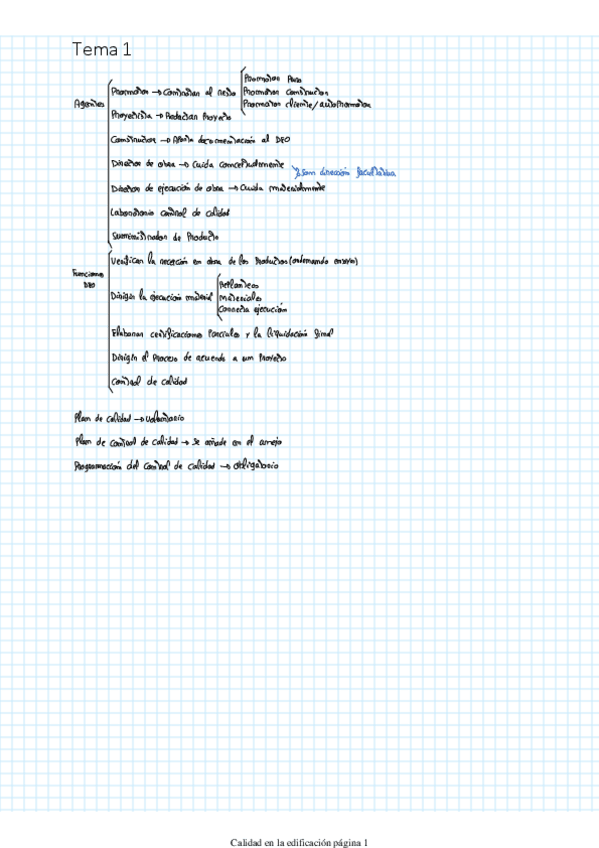 Tema 1
Agentes
Promotor → Contratan al resto
Promotor Puro
Promotor Constructor
Promotor cliente/autopromotor
Proyectista → Redactan Proyecto
Constructor → Aporta documentación al DEO
Director de obra → Cuida conceptualmente
Son dirección facultativa
Director de ejecución de obra → Cuida materialmente
Laboratorio control de calidad
Suministrador de Producto
Funciones DEO
Verifican la recepción en obra de los Productos (ordenando ensayo)
Dirigir la ejecución material
Replanteos
Materiales
Correcta ejecución
Elaboran certificaciones Parciales y la liquidación final
Dirigir el Proceso de acuerdo a un Proyecto
Control de calidad
Plan de calidad → Voluntario
Plan de control de calidad → Se añade en el anejo
Programación del control de calidad → obligatorio
Calidad en la edificación página 1